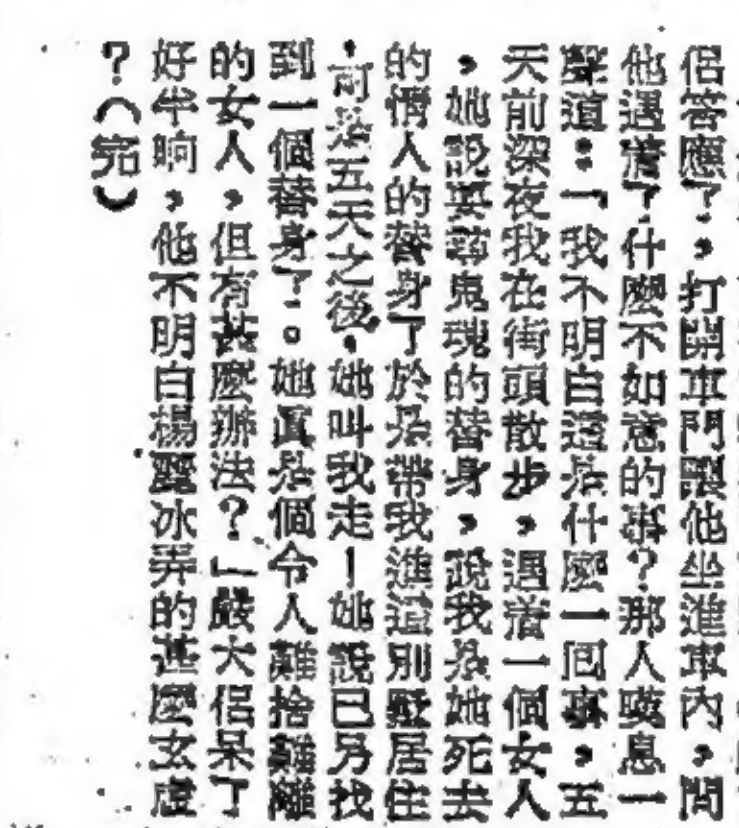 侶答應了，打開車門讓他坐進車內，問
他遇着了什麼不如意的事？那人嘆息一
聲道：「我不明白這是什麼一回事，五
天前深夜我在街頭散步，遇着一個女人
，她說要尋鬼魂的替身，說我是她死去
的情人的替身了於是帶我進這別墅居住
，可是五天之後，她叫我走！她說已另找
到一個替身了。她眞是個令人難捨難離
的女人，但有甚麼辦法？」嚴大侶呆了
好半晌，他不明白楊露冰弄的甚麼玄虛
？（完）